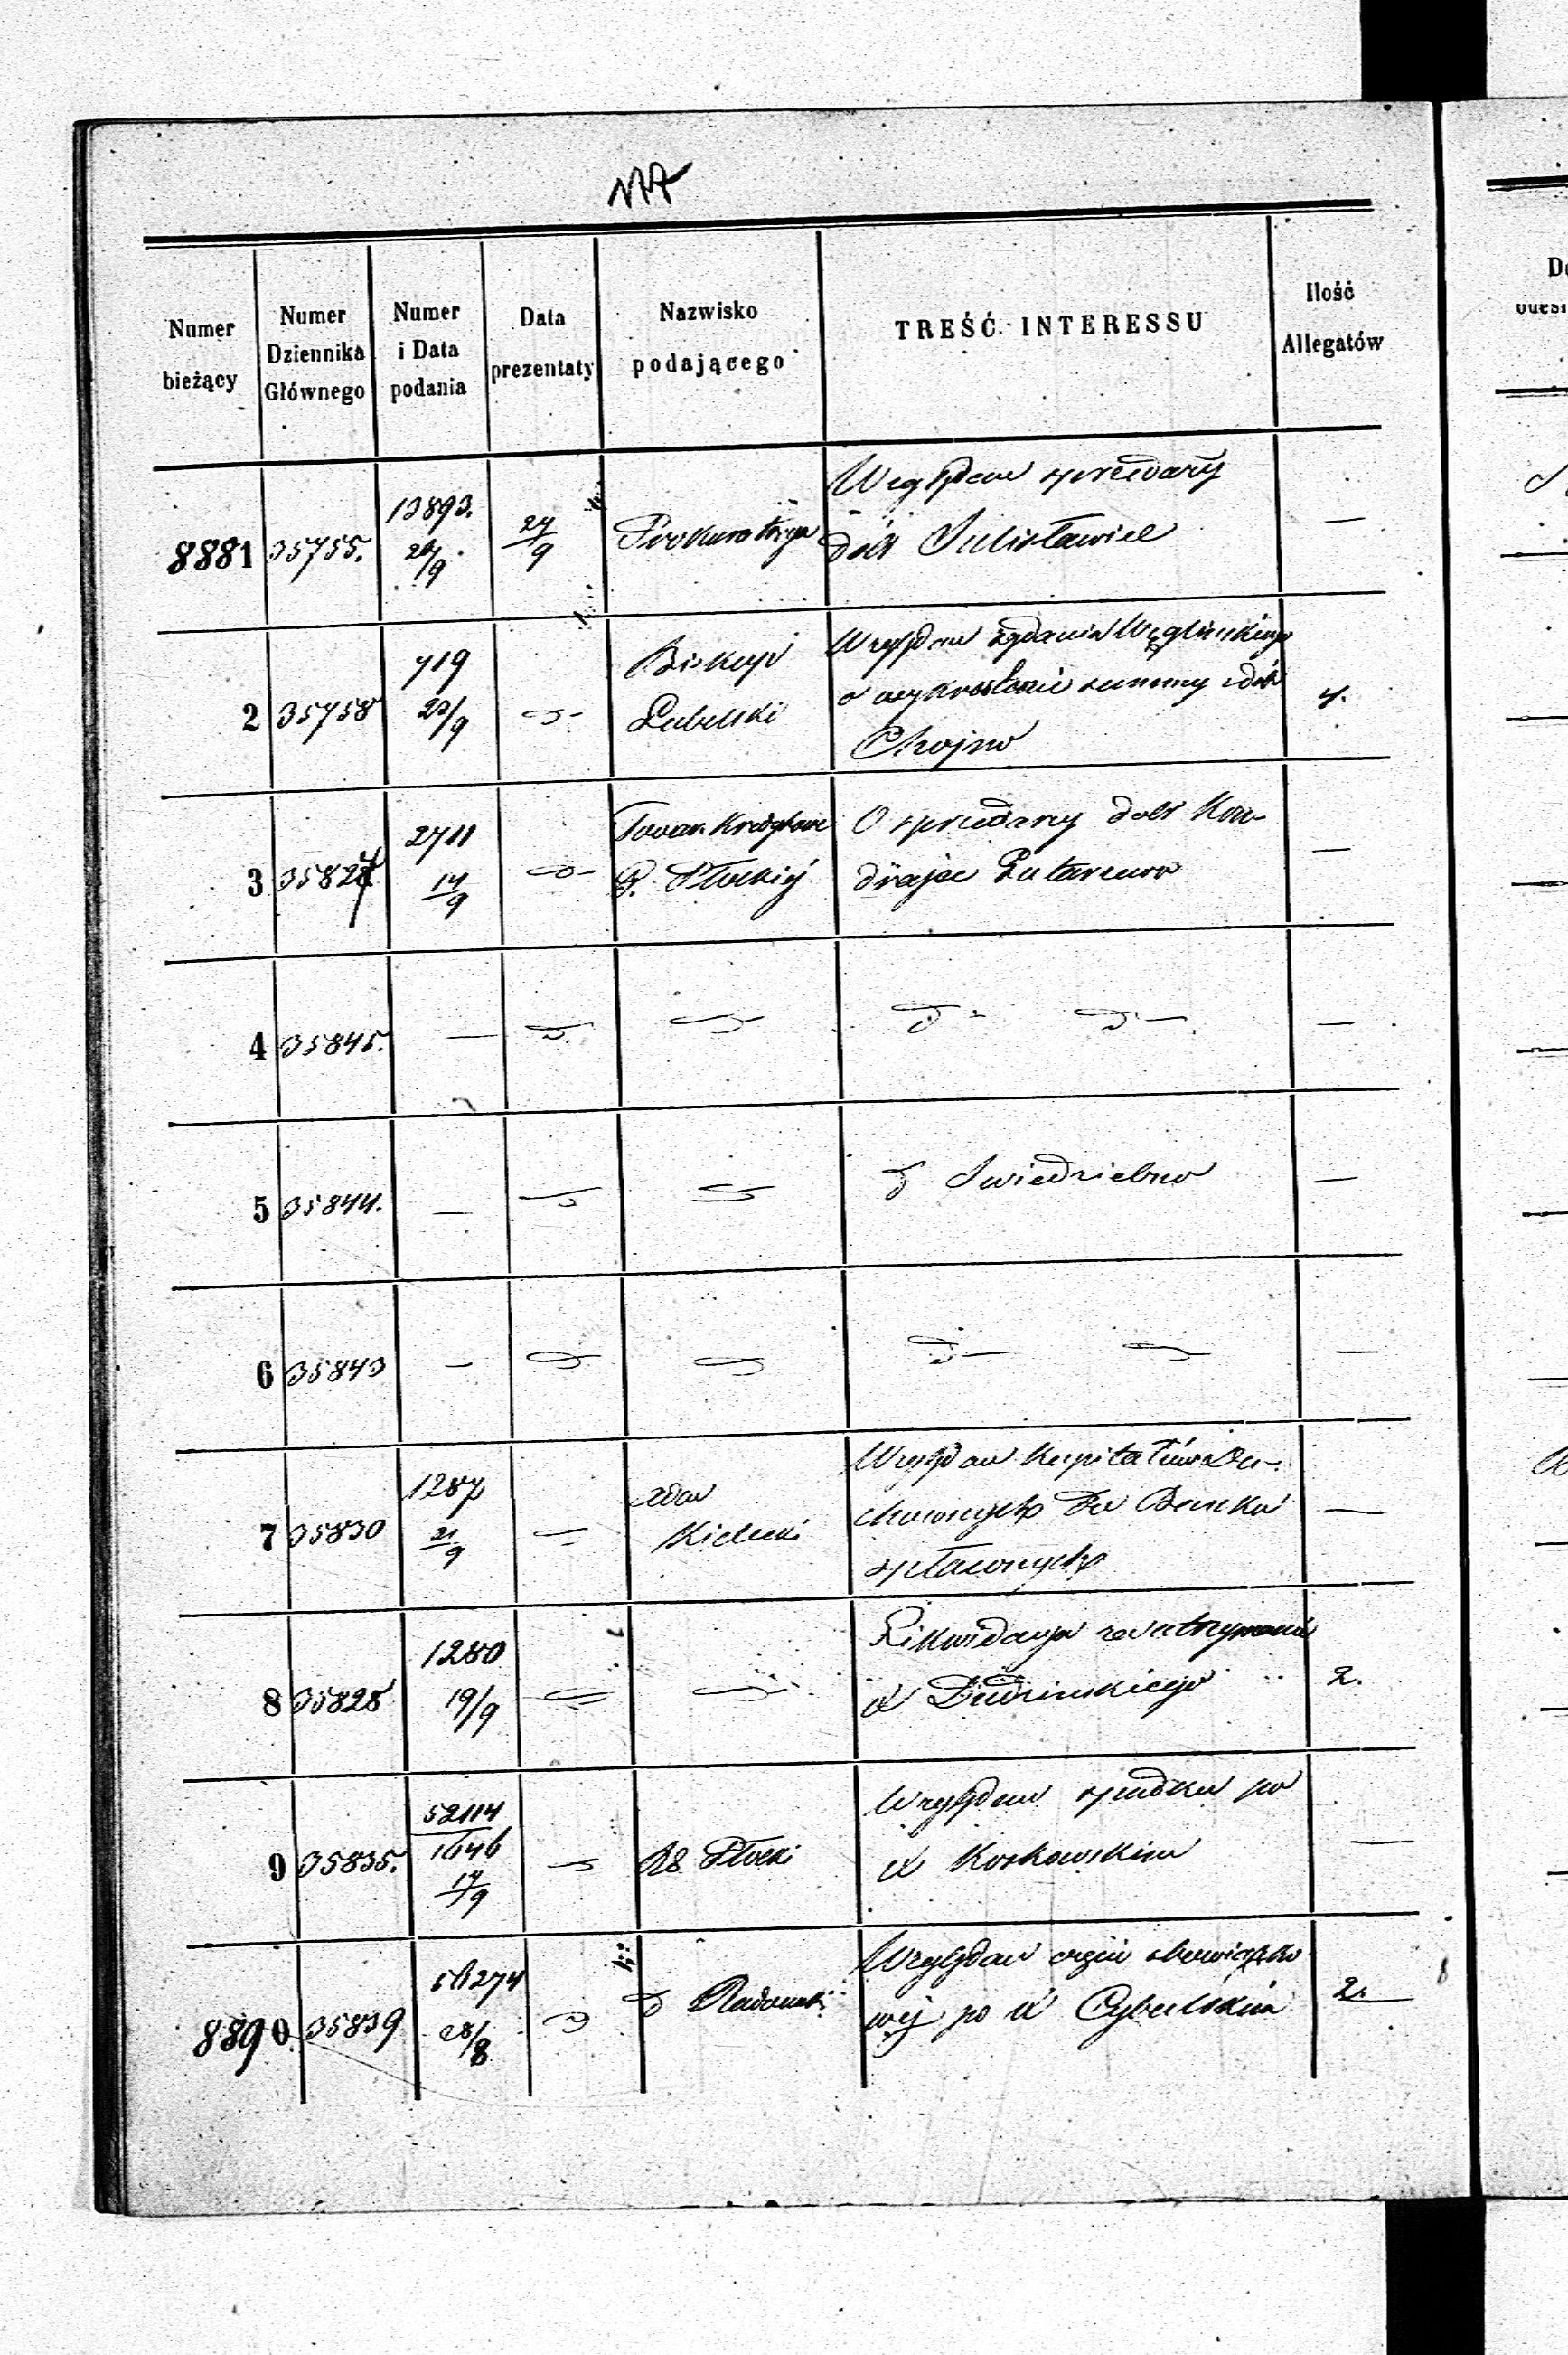 Numer bieżący
Numer Dziennika Głównego
Numer i Data podania
Data prezentaty
Nazwisko podającego
TREŚĆ INTERESSU
Ilość Allegatów
8881 35755. 13893. 24/9 Prokuratorya —
dóbr Sulisławice
2 35758 719 23/9 Biskup Lubelski 4.
Względem żądania Węglińskiego
o wykreślenie summy z dób
Chojno
3 35827 2711 14/9 Towar. Kredytowe
G. Płockiej —
O sprzedaży dóbr Kon-
draje
4 35845. — —
5 35844. — Swiedziebno —
6 35843 — —
7 35830 1287 21/9 Kielecki —
Względem Kapitałów Du-
chownych do Banku
spławnych
8 35828 1280 19/9 2.
Likwidacya za utrzymanie
X
9 35835. 52114/1646 17/9 RG Płocki —
Względem spadku po
X Koskowskim
8890 35839 56274 28/8 D Radomski 2.
Względem części obowiązko
wej po X Cybulskim